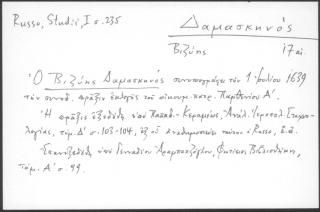 Russo, Studii, I σ. 235
Δαμασκηνός
Βιζύης 17 αι.
Ὁ Βιζύης Δαμασκηνός συνυπογράφει τὴν 1 Ἰουλίου 1639
τὴν συνοδ. πρᾶξιν ἐκλογῆς τοῦ οἰκουμ. πατρ. Παρθενίου Α΄.
Ἡ πρᾶξις ἐξεδόθη ὑπὸ Παπαδ.-Κεραμέως, Ἀνάλ. Ἱεροσολ. Σταχυ-
ολογίας, τόμ. Δ΄ σ. 103-104, ἐξ οὗ ἀναδημοσιεύει ταύτην ὁ Russo, ἔ.ἀ.
Ἐπανεξεδόθη ὑπὸ Γενναδίου Ἀραμπατζόγλου, Φωτίειος Βιβλιοθήκη,
τόμ. Α΄ σ. 99.